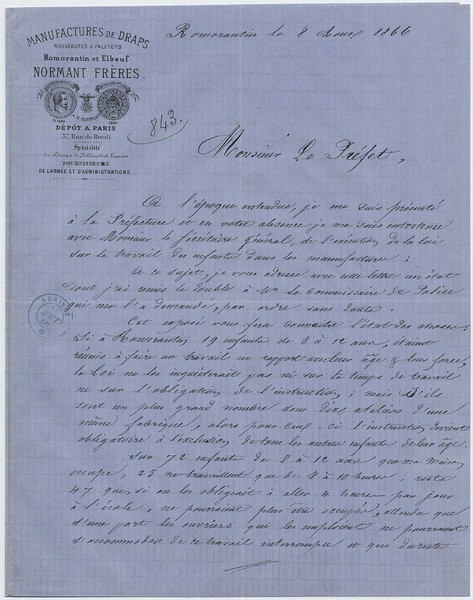 MANUFACTURES DE DRAPS
NOUVEAUTÉS & PALETOTS
Romorantin et Elbeuf
NORMANT FRÈRES.
DÉPÔT A PARIS
37, Rue de Rivoli
Spécialité
FOURNISSEURS
DE L'ARMÉE ET D'ADMINISTRATIONS
Romorantin le 8 Aout 1866
843.
Monsieur Le Préfet,
A l'époque entendue, je me suis présenté
à la Préfecture et en votre absence je me suis entretenu
avec Monsieur le Secrétaire général, de l'exécution de la loi
sur le travail des enfants dans les manufactures ;
A ce sujet, je vous adresse avec cette lettre un état
dont j'ai remis le double à Mr le Commissaire de Police
qui me l'a demandé, par ordre sans doute.
Cet exposé vous fera connaitre l'état des choses.
Si à Romorantin 19 enfants de 8 à 12 ans, étaient
réunis à faire un travail en rapport avec leur âge & leur force,
la loi ne les inquiéterait pas ni sur le temps de travail
ni sur l'obligation de l'instruction ; mais s'ils
sont un plus grand nombre dans divers ateliers d'une
même fabrique, alors pour ceux-ci l'instruction devient
obligatoire à l'exclusion de tous les autres enfants de leur âge.
Sur 72 enfants de 8 à 12 ans que ma maison
occupe, 25 ne travaillent que de 8 à 10 heures, reste
47 que, si on les obligeait à aller 4 heures par jour
à l'école, ne pourraient plus être occupés, attendu que
d'une part les ouvriers qui les emploient ne pourraient
s'accommoder de ce travail interrompu et que du reste